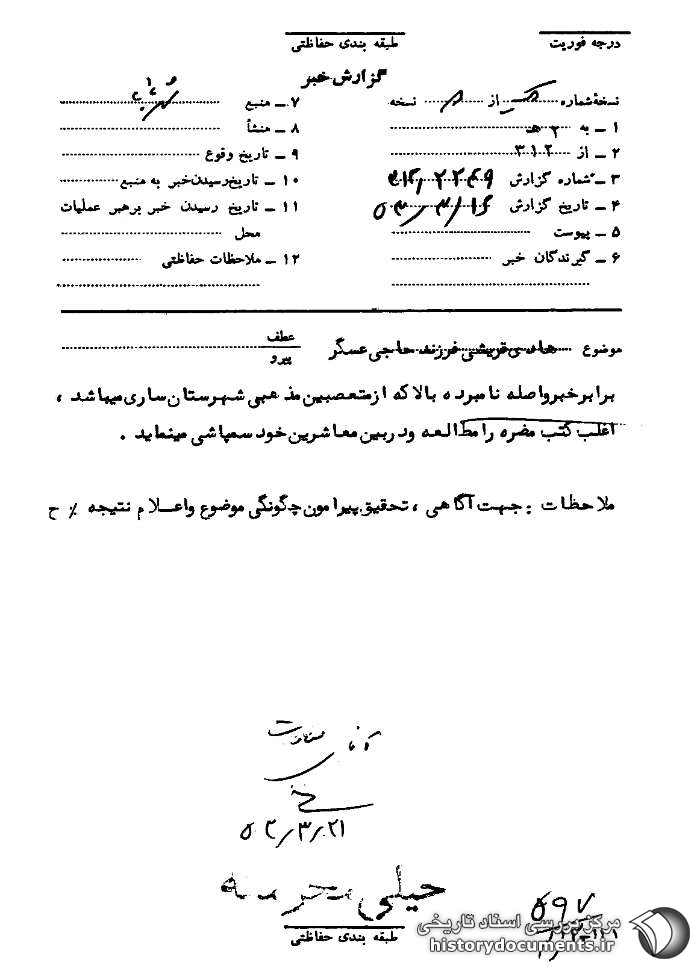 درجه فوریت
طبقه بندی حفاظتی
گزارش خبر
نسخهٔ شماره از نسخه
۱ ــ به ۲ هـ
۲ ــ از ۳۱۲
۳ ــ شماره گزارش ۳۱۲٫۲۲۴۹
۴ ــ تاریخ گزارش
۵ ــ پیوست
۶ ــ گیرندگان خبر
۷ ــ منبع
۸ ــ منشأ
۹ ــ تاریخ وقوع
۱۰ ــ تاریخ رسیدن خبر به منبع
۱۱ ــ تاریخ رسیدن خبر برهبر عملیات
محل
۱۲ ــ ملاحظات حفاظتی
موضوع هادی قریشی فرزند حاجی عسگر
عطف
پیرو
برابر خبر واصله نامبرده بالا که از متعصبین مذهبی شهرستان ساری میباشد ،
اغلب کتب مضره را مطالعه و در بین معاشرین خود سمپاشی مینماید .
ملاحظات : جهت آگاهی ، تحقیق پیرامون چگونگی موضوع و اعلام نتیجه ٪ ح
آقای
۵۲٫۳٫۲۱
خیلی محرمانه
طبقه بندی حفاظتی
۵۹۷
مرکز بررسی اسناد تاریخی
historydocuments.ir